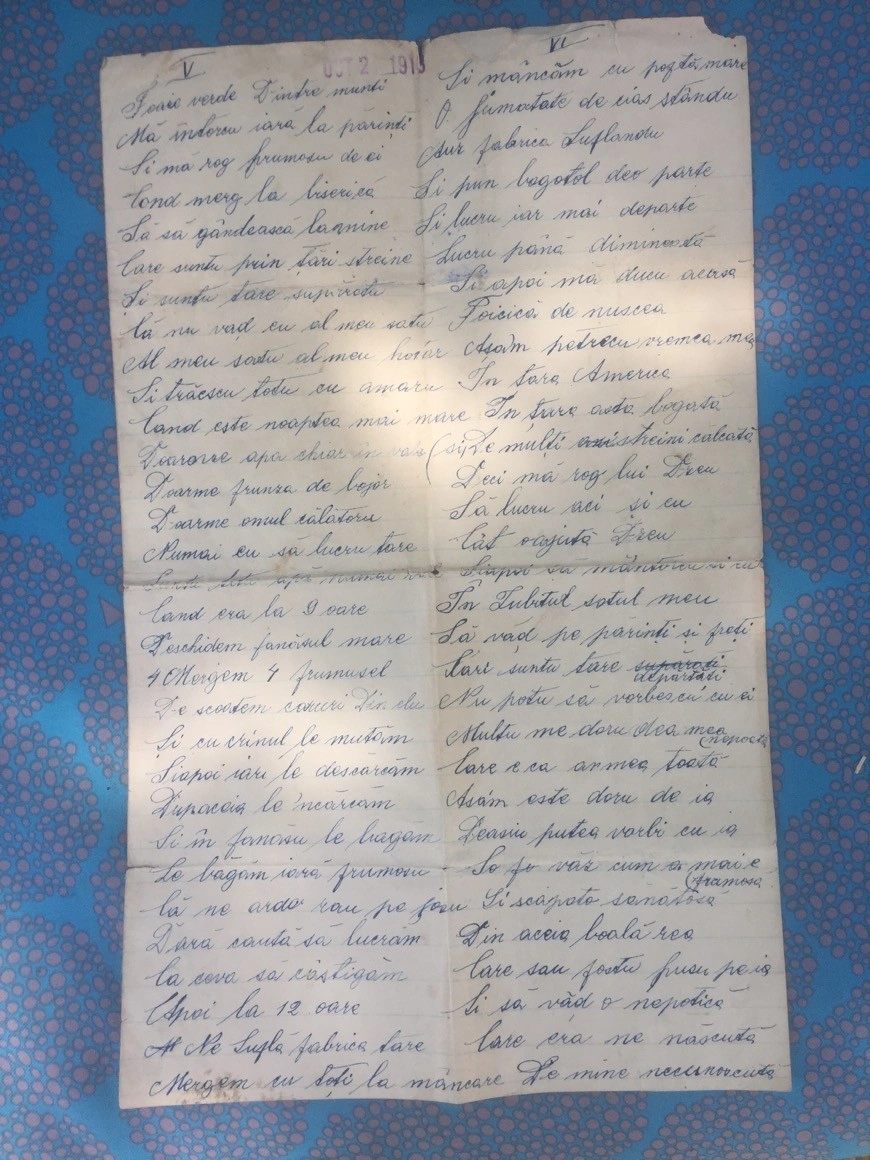 V
OCT 2 191
Foaie verde Dintre munti
Mă întorcu iară la părinți
Si mă rog frumosu de ei
Cand merg la biserică
Să să gândească lamine
Care suntu prin țări streine
Si suntu tare supăratu
Că nu văd eu al meu satu
Al meu satu al meu hotar
Si trăescu totu cu amaru
Cand este noaptea mai mare
Doarme apa chiar în
Doarme frunza de bojor
Doarme omul călătoru
Numai eu să lucru tare
apă numai
Cand era la 9 oare
Deschidem fanăsul mare
4 Mergem 4 frumusel
De scoatem caruri Din elu
Și cu crinul le mutăm
Siapoi iari le descărcăm
Dupaceia le încărcăm
Si în fanasu le bagăm
Le băgăm iară frumosu
Că ne ardo rau pe josu
Dară caută să lucrăm
Ca ceva să câștigăm
Apoi la 12 oare
Ne Suflă fabrica tare
Mergem cu toți la mâncare
VI
Si mâncăm cu poftă mare
O jumatate de cias stându
Aur fabrica Suflandu
Si pun bogotol deo parte
Si lucru iar mai departe
Lucru până dimineată
Si apoi mă ducu acasă
Foicică de nuscea
Așam petrecu vremea mea
In tara America
In țara asta bogată
(si) De mulți streini călcată
Deci mă rog lui Dzeu
Să lucru aci și eu
Cât oajuta Dzeu
Siapoi să măntorcu si eu
În Iubitul satul meu
Să văd pe părinți și frați
Cari suntu tare supărați
depărtați
Nu potu să vorbescu cu ei
Multu me doru dea mea
(nepoată
Care e ca armea toată
Asăm este doru de ia
Deasiu putea vorbi cu ia
So fo văz cum a mai e
(frumosa
Si scăpato sănătosa
Din aceia boală rea
Care sau fostu pusu pe ia
Si să văd o nepotică
Care era ne născută
De mine necunoscută